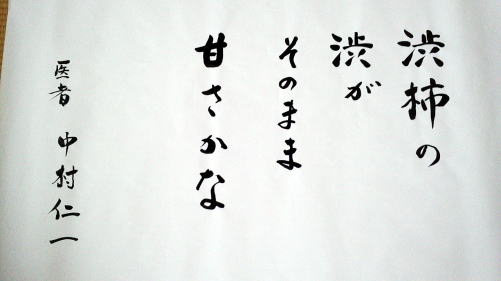 渋柿の
渋が
そのまま
甘さかな
医者 中村仁一